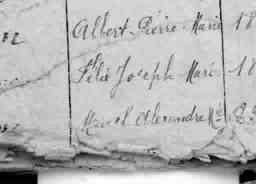 Albert Pierre Marie 18
Félix Joseph Marie 18
Marcel Alexandre Mie